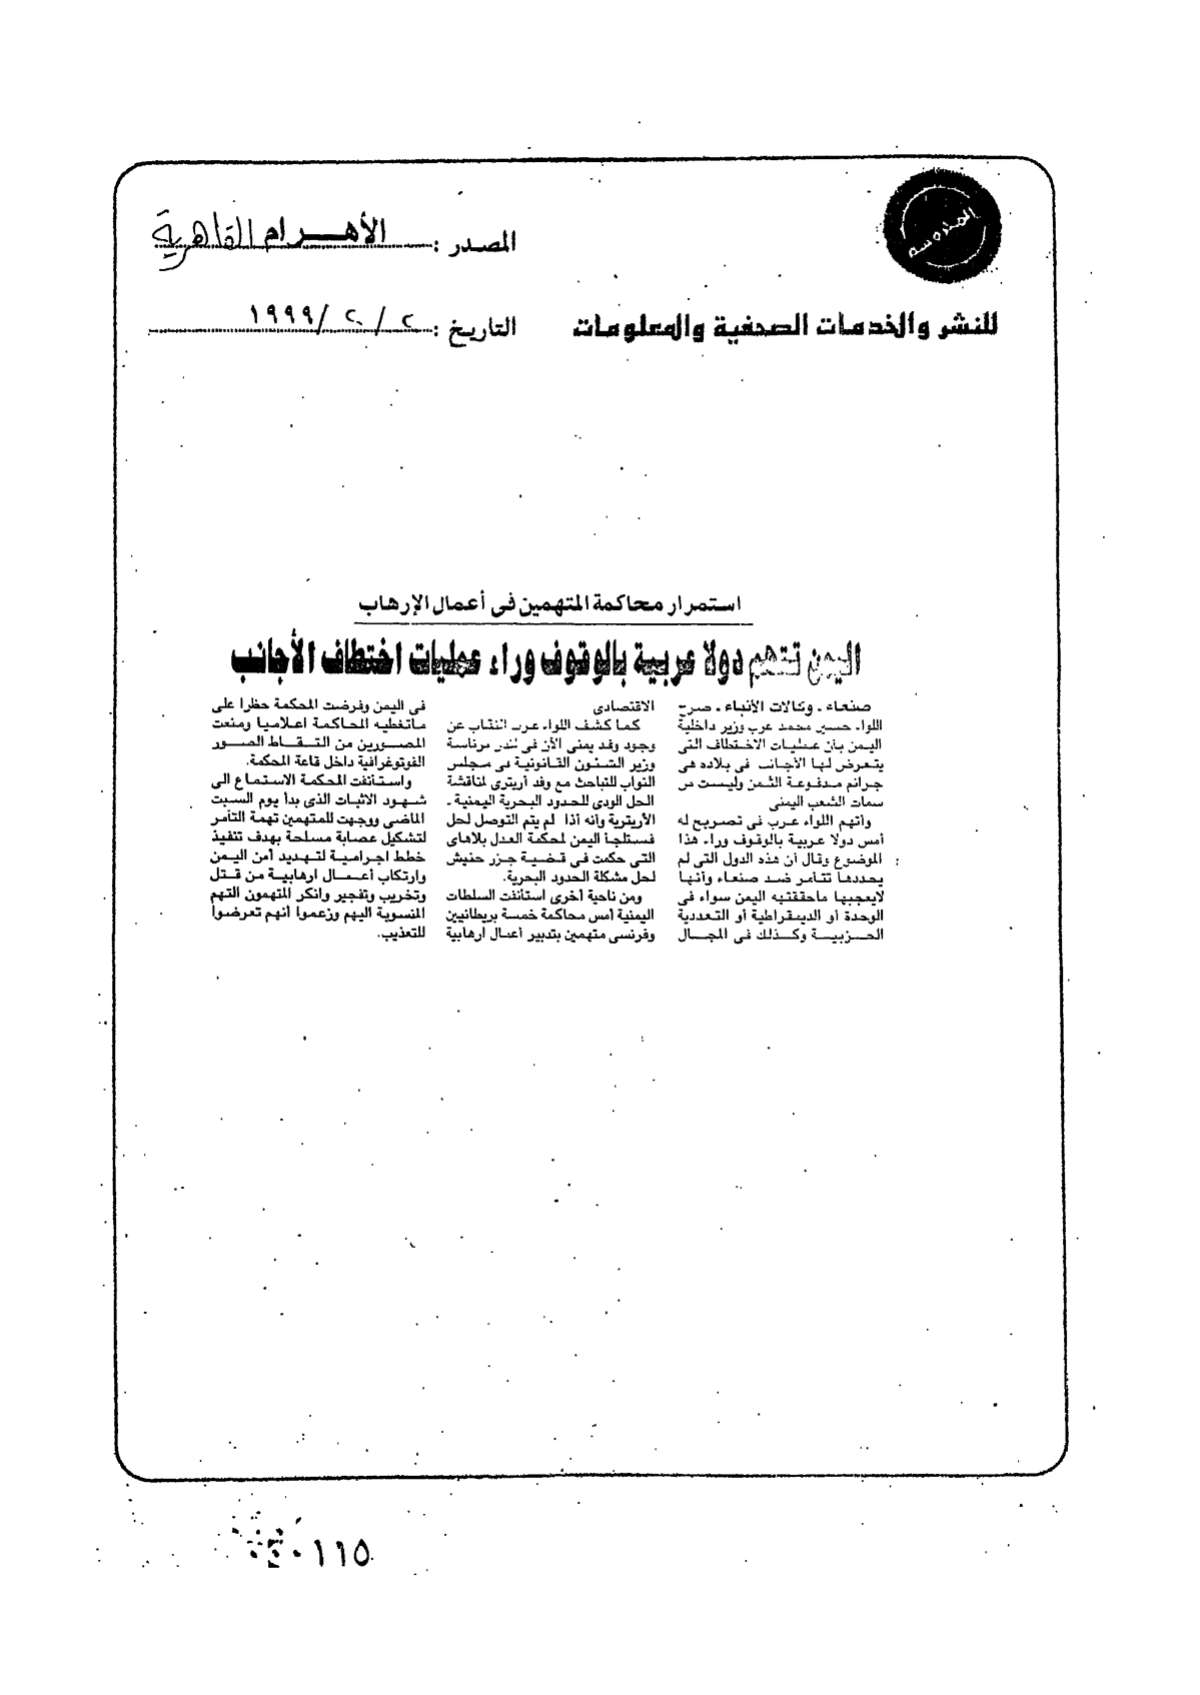 المصدر : الأهرام القاهرية
للنشر والخدمات الصحفية والمعلومات
التاريخ : ٢ / ٢ / ١٩٩٩
استمرار محاكمة المتهمين فى أعمال الإرهاب
اليمن تتهم دولا عربية بالوقوف وراء عمليات اختطاف الأجانب
صنعاء ـ وكالات الأنباء ـ صرح
اللواء حسين محمد عرب وزير داخلية
اليمن بأن عمليات الاختطاف التى
يتعرض لها الأجانب فى بلاده هى
جرائم مدفوعة الثمن وليست من
سمات الشعب اليمنى
وأتهم اللواء عرب فى تصريح له
أمس دولا عربية بالوقوف وراء هذا
الموضوع وقال أن هذه الدول التى لم
يحددها تتأمر ضد صنعاء وأنها
لايعجبها ماحققته اليمن سواء فى
الوحدة أو الديمقراطية أو التعددية
الحزبية وكذلك فى المجال
الاقتصادى
كما كشف اللواء عرب النقاب عن
وجود وفد يمنى الأن فى لندن برئاسة
وزير الشئون القانونية فى مجلس
النواب للتباحث مع وفد أريترى لمناقشة
الحل الودى للحدود البحرية اليمنية ـ
الأريترية وأنه اذا لم يتم التوصل لحل
فستلجأ اليمن لمحكمة العدل بلاهاى
التى حكمت فى قضية جزر حنيش
لحل مشكلة الحدود البحرية.
ومن ناحية أخرى استأنفت السلطات
اليمنية أمس محاكمة خمسة بريطانيين
وفرنسى متهمين بتدبير أعمال ارهابية
فى اليمن وفرضت المحكمة حظرا على
ماتغطيه المحاكمة اعلاميا ومنعت
المصورين من التقاط الصور
الفوتوغرافية داخل قاعة المحكمة.
واستأنفت المحكمة الاستماع الى
شهود الاثبات الذى بدأ يوم السبت
الماضى ووجهت للمتهمين تهمة التأمر
لتشكيل عصابة مسلحة بهدف تنفيذ
خطط اجرامية لتهديد أمن اليمن
وارتكاب أعمال ارهابية من قتل
وتخريب وتفجير وانكر المتهمون التهم
المنسوبة اليهم وزعموا أنهم تعرضوا
للتعذيب.